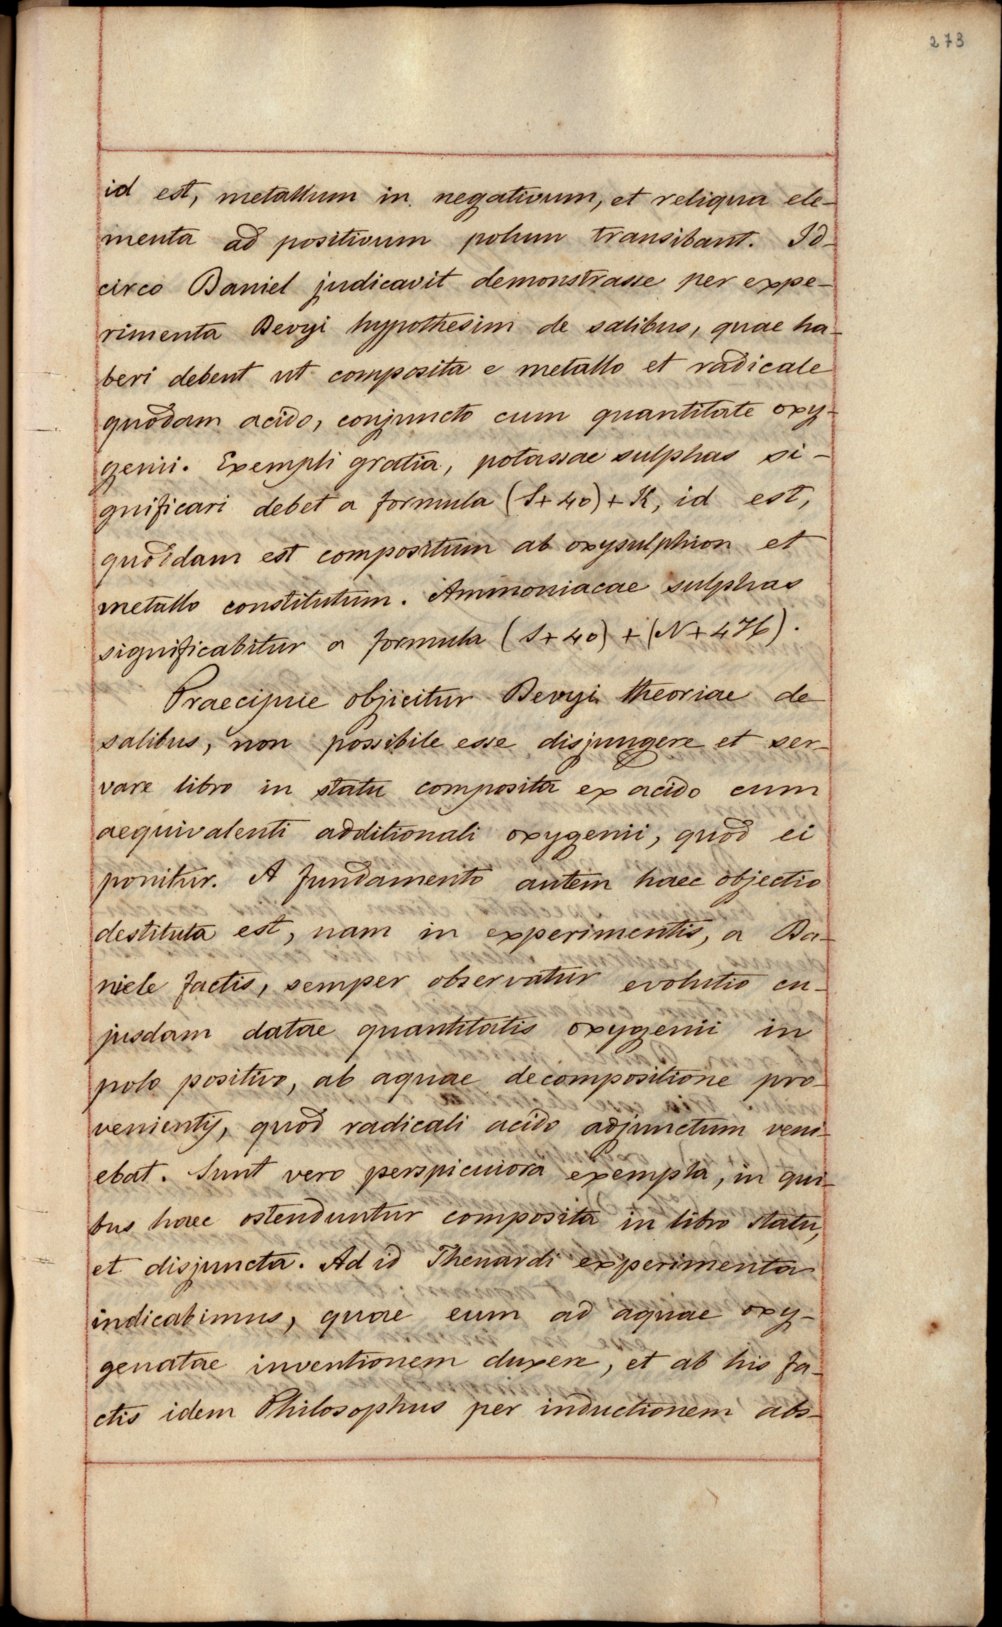 273
id est, metallum in negativum, et reliqua ele-
menta ad positivum polum transibant. Id-
circo Daniel judicavit demonstrasse per expe-
rimenta Devyi hypothesim de salibus, quae ha-
beri debent ut composita e metallo et radicale
quodam acido, conjuncto cum quantitate oxy-
genii. Exempli gratia, potassae sulphas si-
gnificari debet a formula (S+4O)+K, id est,
quoddam est compositum ab oxysulphion et
metallo constitutum. Ammoniacae sulphas
significabitur a formula (S+4O)+(N+4H).
Praecipue objicitur Devyi theoriae de
salibus, non possibile esse disjungere et ser-
vare libro in statu composita ex acido cum
aequivalenti additionali oxygenii, quod ei
ponitur. A fundamento autem haec objectio
destituta est, nam in experimentis, a Da-
niele factis, semper observatur evolutio cu-
jusdam datae quantitatis oxygenii in
polo positivo, ab aquae decompositione pro-
venientis, quod radicali acido adjunctum veni-
ebat. Sunt vero perspicuiora exempla, in qui-
bus haec ostenduntur composita in libro statu,
et disjuncta. Ad id Thenardi experimenta
indicabimus, quae eum ad aquae oxy-
genatae inventionem duxere, et ab his fa-
ctis idem Philosophus per inductionem abs-